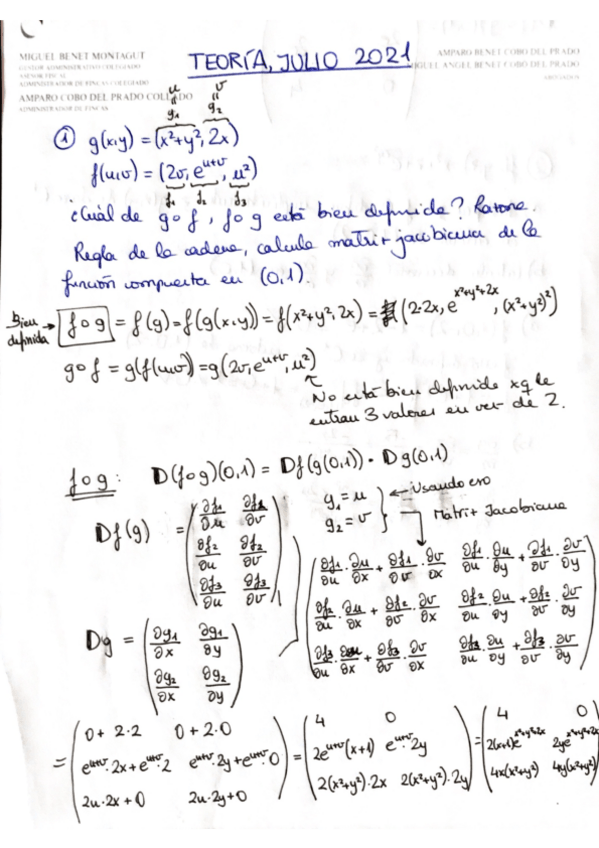 MIGUEL BENET MONTAGUT
GESTOR ADMINISTRATIVO COLEGIADO
ASESOR FISCAL
ADMINISTRADOR DE FINCAS COLEGIADO
AMPARO COBO DEL PRADO COLLADO
ADMINISTRADOR DE FINCAS
AMPARO BENET COBO DEL PRADO
MIGUEL ANGEL BENET COBO DEL PRADO
ABOGADOS
TEORÍA, JULIO 2021
u v
g₁ g₂
① g(x,y) = (x²+y², 2x)
f(u,v) = (2v, e^{u+v}, u²)
f₁ f₂ f₃
¿Cuál de g∘f, f∘g está bien definida? Razona.
Regla de la cadena, calcula matriz jacobiana de la
función compuesta en (0,1).
bien definida → f∘g = f(g) = f(g(x,y)) = f(x²+y², 2x) = (2·2x, e^{x²+y²+2x}, (x²+y²)²)
g∘f = g(f(u,v)) = g(2v, e^{u+v}, u²)
No está bien definida xq le
entran 3 valores en vez de 2.
f∘g: D(f∘g)(0,1) = Df(g(0,1)) · Dg(0,1)
Df(g) = (∂f₁/∂u ∂f₁/∂v
∂f₂/∂u ∂f₂/∂v
∂f₃/∂u ∂f₃/∂v)
g₁ = u
g₂ = v } ← Usando eso
Matriz Jacobiana
Dg = (∂g₁/∂x ∂g₁/∂y
∂g₂/∂x ∂g₂/∂y)
(∂f₁/∂u · ∂u/∂x + ∂f₁/∂v · ∂v/∂x ∂f₁/∂u · ∂u/∂y + ∂f₁/∂v · ∂v/∂y
∂f₂/∂u · ∂u/∂x + ∂f₂/∂v · ∂v/∂x ∂f₂/∂u · ∂u/∂y + ∂f₂/∂v · ∂v/∂y
∂f₃/∂u · ∂u/∂x + ∂f₃/∂v · ∂v/∂x ∂f₃/∂u · ∂u/∂y + ∂f₃/∂v · ∂v/∂y)
= (0 + 2·2 0 + 2·0
e^{u+v}·2x + e^{u+v}·2 e^{u+v}·2y + e^{u+v}·0
2u·2x + 0 2u·2y + 0)
= (4 0
2e^{u+v}(x+1) e^{u+v}·2y
2(x²+y²)·2x 2(x²+y²)·2y)
= (4 0
2(x+1)e^{x²+y²+2x} 2ye^{x²+y²+2x}
4x(x²+y²) 4y(x²+y²))